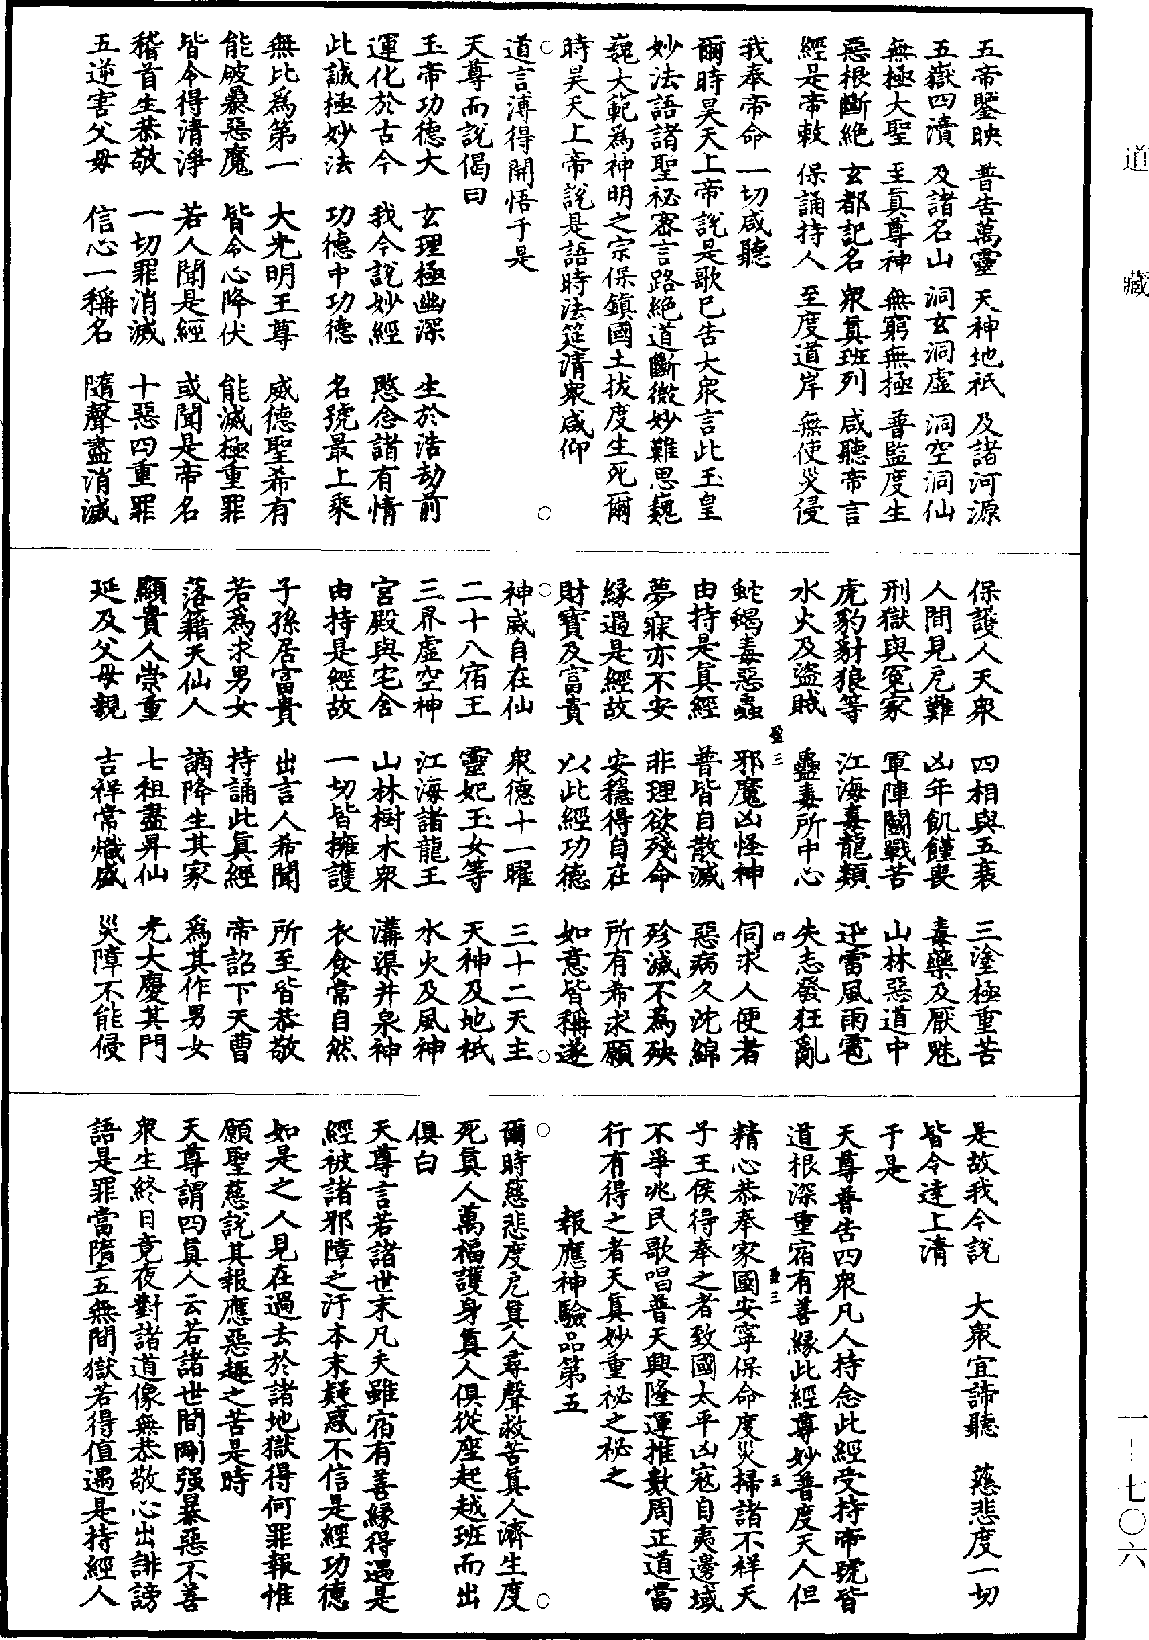 五帝鑒映　普告萬靈　天神地祇　及諸河源
五嶽四瀆　及諸名山　洞玄洞虛　洞空洞仙
無極大聖　至真尊神　無窮無極　普監度生
惡根斷絕　玄都記名　衆真班列　咸聽帝言
經是帝敕　保誦持人　至度道岸　無使災侵
我奉帝命　一切咸聽
爾時昊天上帝說是歌已告大衆言此玉皇
妙法語諸聖祕密言路絕道斷微妙難思巍
巍大範為神明之宗保鎮國土拔度生死爾
時昊天上帝說是語時法筵清衆咸仰
道言薄得開悟于是
天尊而說偈曰
玉帝功德大　玄理極幽深　生於浩劫前
運化於古今　我今說妙經　愍念諸有情
此誠極妙法　功德中功德　名號最上乘
無比為第一　大光明王尊　威德聖希有
能破暴惡魔　皆令心降伏　能滅極重罪
皆令得清淨　若人聞是經　或聞是帝名
稽首生恭敬　一切罪消滅　十惡四重罪
五逆害父母　信心一稱名　隨聲盡消滅
保護人天衆　四相與五衰　三塗極重苦
人間見厄難　凶年飢饉喪　毒藥及厭魅
刑獄與冤家　軍陣鬭戰苦　山林惡道中
虎豹豺狼等　江海毒龍類　迅雷風雨雹
水火及盜賊　蠱毒所中心　失志發狂亂
蛇蝎毒惡蟲　邪魔凶怪神　伺求人便者
由持是真經　普皆自散滅　惡病久沈綿
夢寐亦不安　非理欲殘命　殄滅不為殃
緣遇是經故　安穩得自在　所有希求願
財寶及富貴　以此經功德　如意皆稱遂
神威自在仙　衆德十一曜　三十二天主
二十八宿王　靈妃玉女等　天神及地祇
三界虛空神　江海諸龍王　水火及風神
宮殿與宅舍　山林樹木衆　溝渠井泉神
由持是經故　一切皆擁護　衣食常自然
子孫居富貴　出言人希聞　所至皆恭敬
若為求男女　持誦此真經　帝詔下天曹
落籍天仙人　謫降生其家　為其作男女
顯貴人崇重　七祖盡昇仙　光大慶其門
延及父母親　吉祥常熾盛　災障不能侵
是故我今說　大衆宜諦聽　慈悲度一切
皆令達上清
于是
天尊普告四衆凡人持念此經受持帝號皆
道根深重宿有善緣此經尊妙普度天人但
精心恭奉家國安寧保命度災掃諸不祥天
子王侯得奉之者致國太平凶寇自夷邊域
不爭兆民歌唱普天興隆運推數周正道當
行有得之者天真妙重祕之祕之
報應神驗品第五
爾時慈悲度厄真人尋聲救苦真人濟生度
死真人萬福護身真人俱從座起越班而出
俱白
天尊言若諸世末凡夫雖宿有善緣得遇是
經被諸邪障之汙本末疑惑不信是經功德
如是之人見在過去於諸地獄得何罪報惟
願聖慈說其報應惡趣之苦是時
天尊謂四真人云若諸世間剛强暴惡不善
衆生終日竟夜對諸道像無恭敬心出誹謗
語是罪當墮五無間獄若得值遇是持經人
道藏
一-七〇六